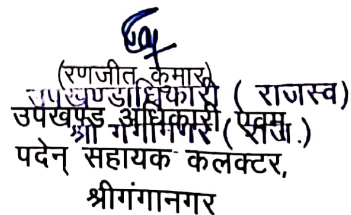 (रणजीत कुमार)
उपखण्डाधिकारी ( राजस्व)
उपखण्ड अधिकारी एवम्
श्री गंगानगर ( राज.)
पदेन् सहायक कलक्टर,
श्रीगंगानगर